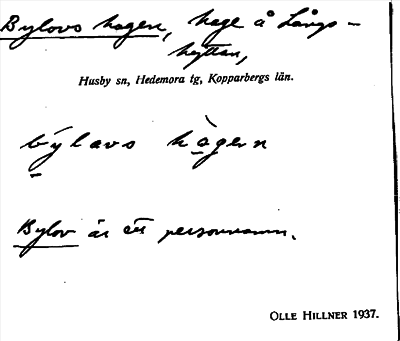 Bylovs hagen, hage å Långs-
hyttan,
Husby sn, Hedemora tg, Kopparbergs län.
býlavs hàgern
Bylov är ett personnamn.
OLLE HILLNER 1937.